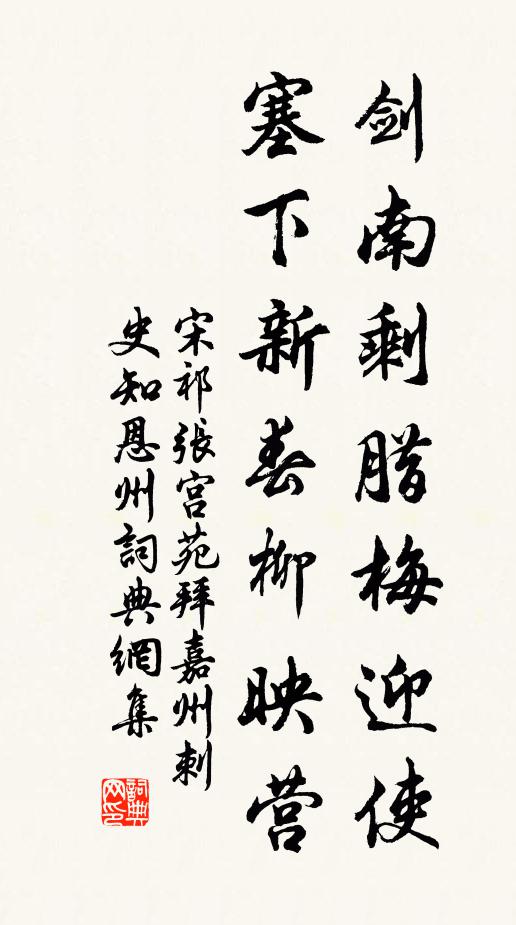 剑南剩腊梅迎使
塞下新春柳映营
宋祁張宫苑拜嘉州刺
史知恩州詞典網集
詞典网印